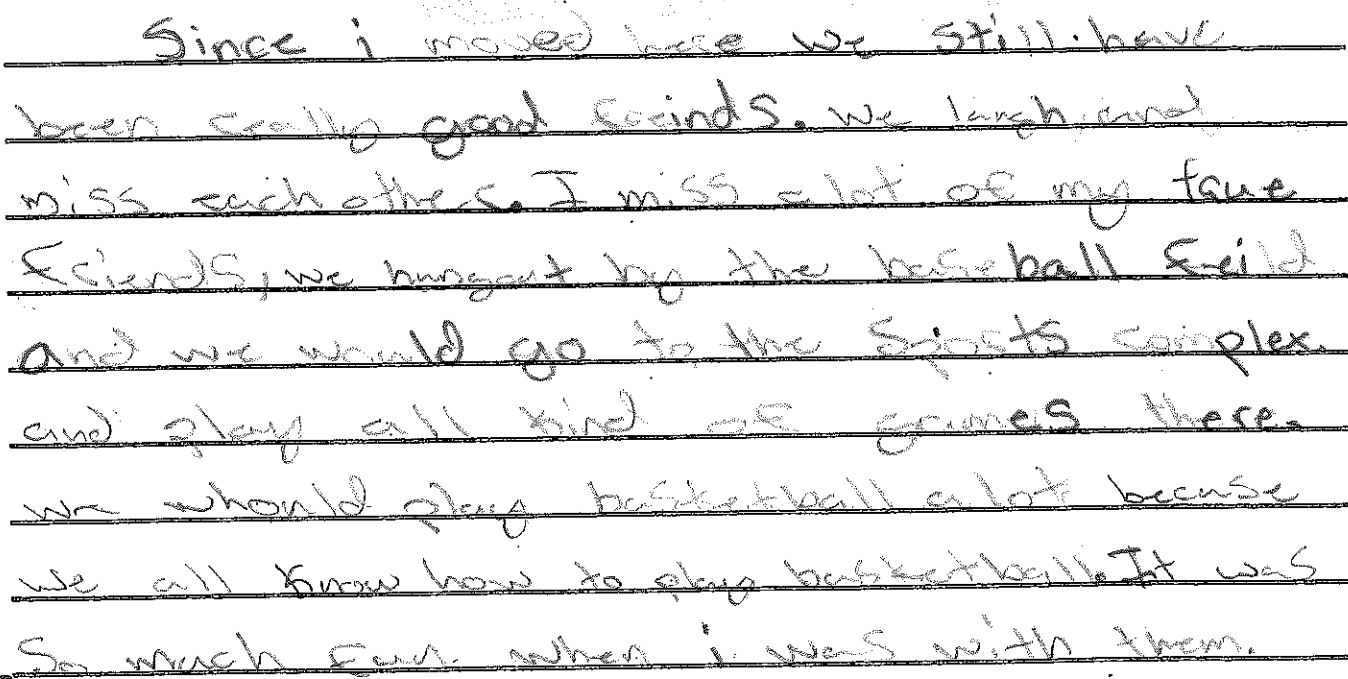 Since i moved here we still have
been really good freinds. We laugh and
miss each others. I miss a lot of my
friends, we hungout by the baseball feild
and we would go to the sports complex.
and play all kind of games there.
we whould play basketball a lot becuse
we all know how to play basketball. It was
So much fun. when i was with them.